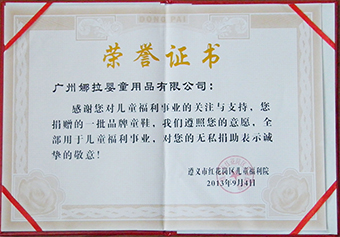 荣誉证书
广州娜拉婴童用品有限公司：
感谢您对儿童福利事业的关注与支持，您
捐赠的一批品牌童鞋，我们遵照您的意愿，全
部用于儿童福利事业，对您的无私捐助表示诚
挚的敬意！
遵义市红花岗区儿童福利院
2013年9月4日